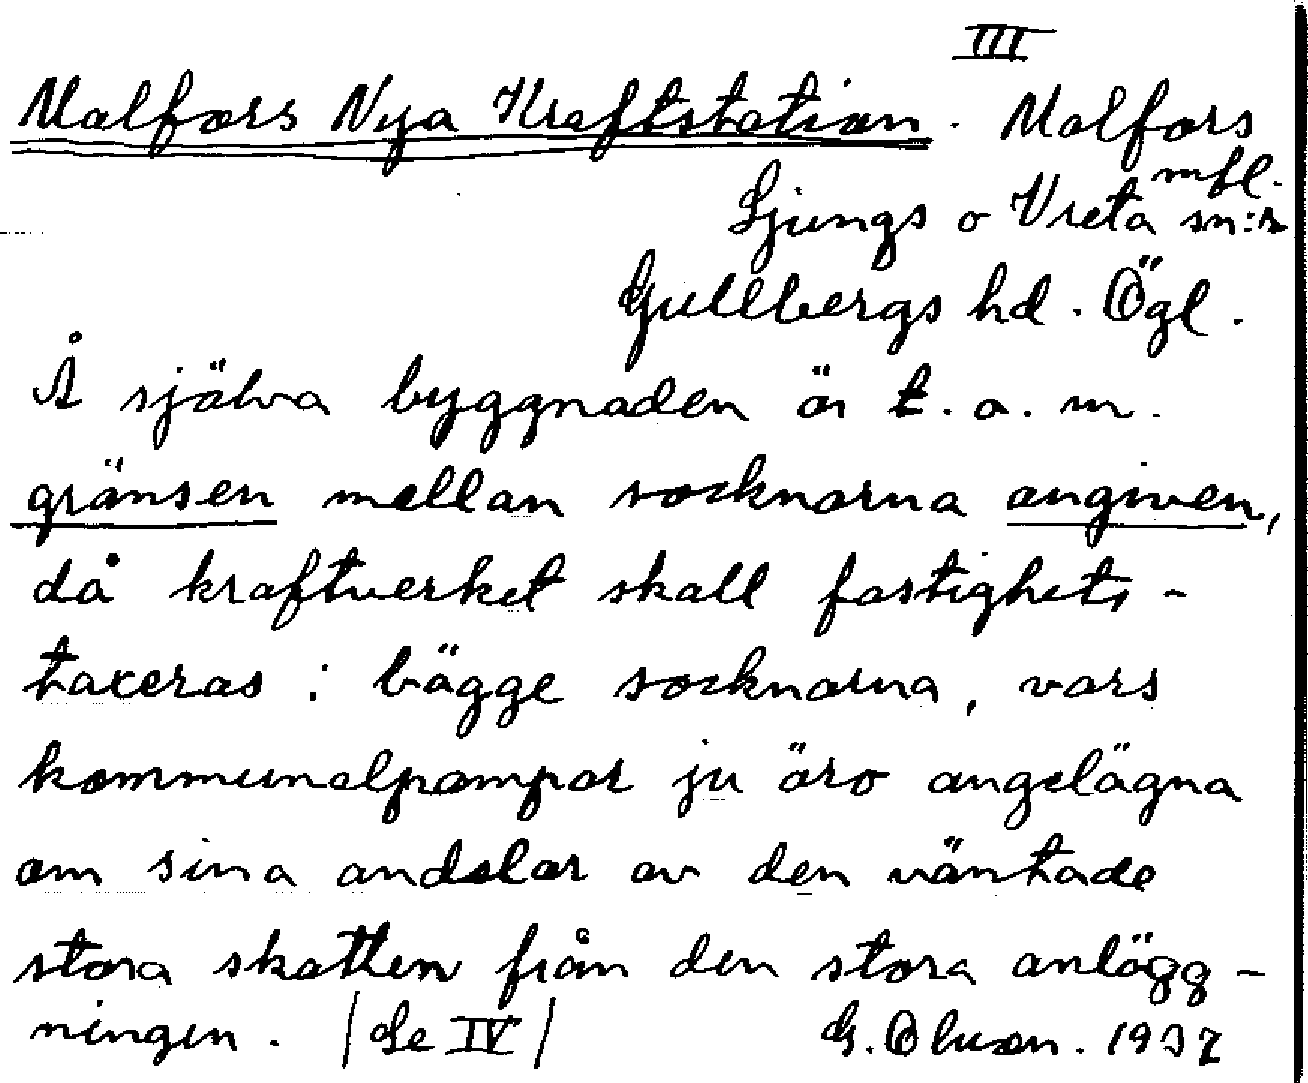 III
Malfors Nya Kraftstation. Malfors
mfl.
Ljungs o Vreta sn:r
Gullbergs hd. Ögl.
Å själva byggnaden är t.o.m.
gränsen mellan socknarna angiven,
då kraftverket skall fastighets-
taxeras i bägge socknarna, vars
kommunalpampar ju äro angelägna
om sina andelar av den väntade
stora skatten från den stora anlägg-
ningen. /Se IV/ G. Olsson. 1937